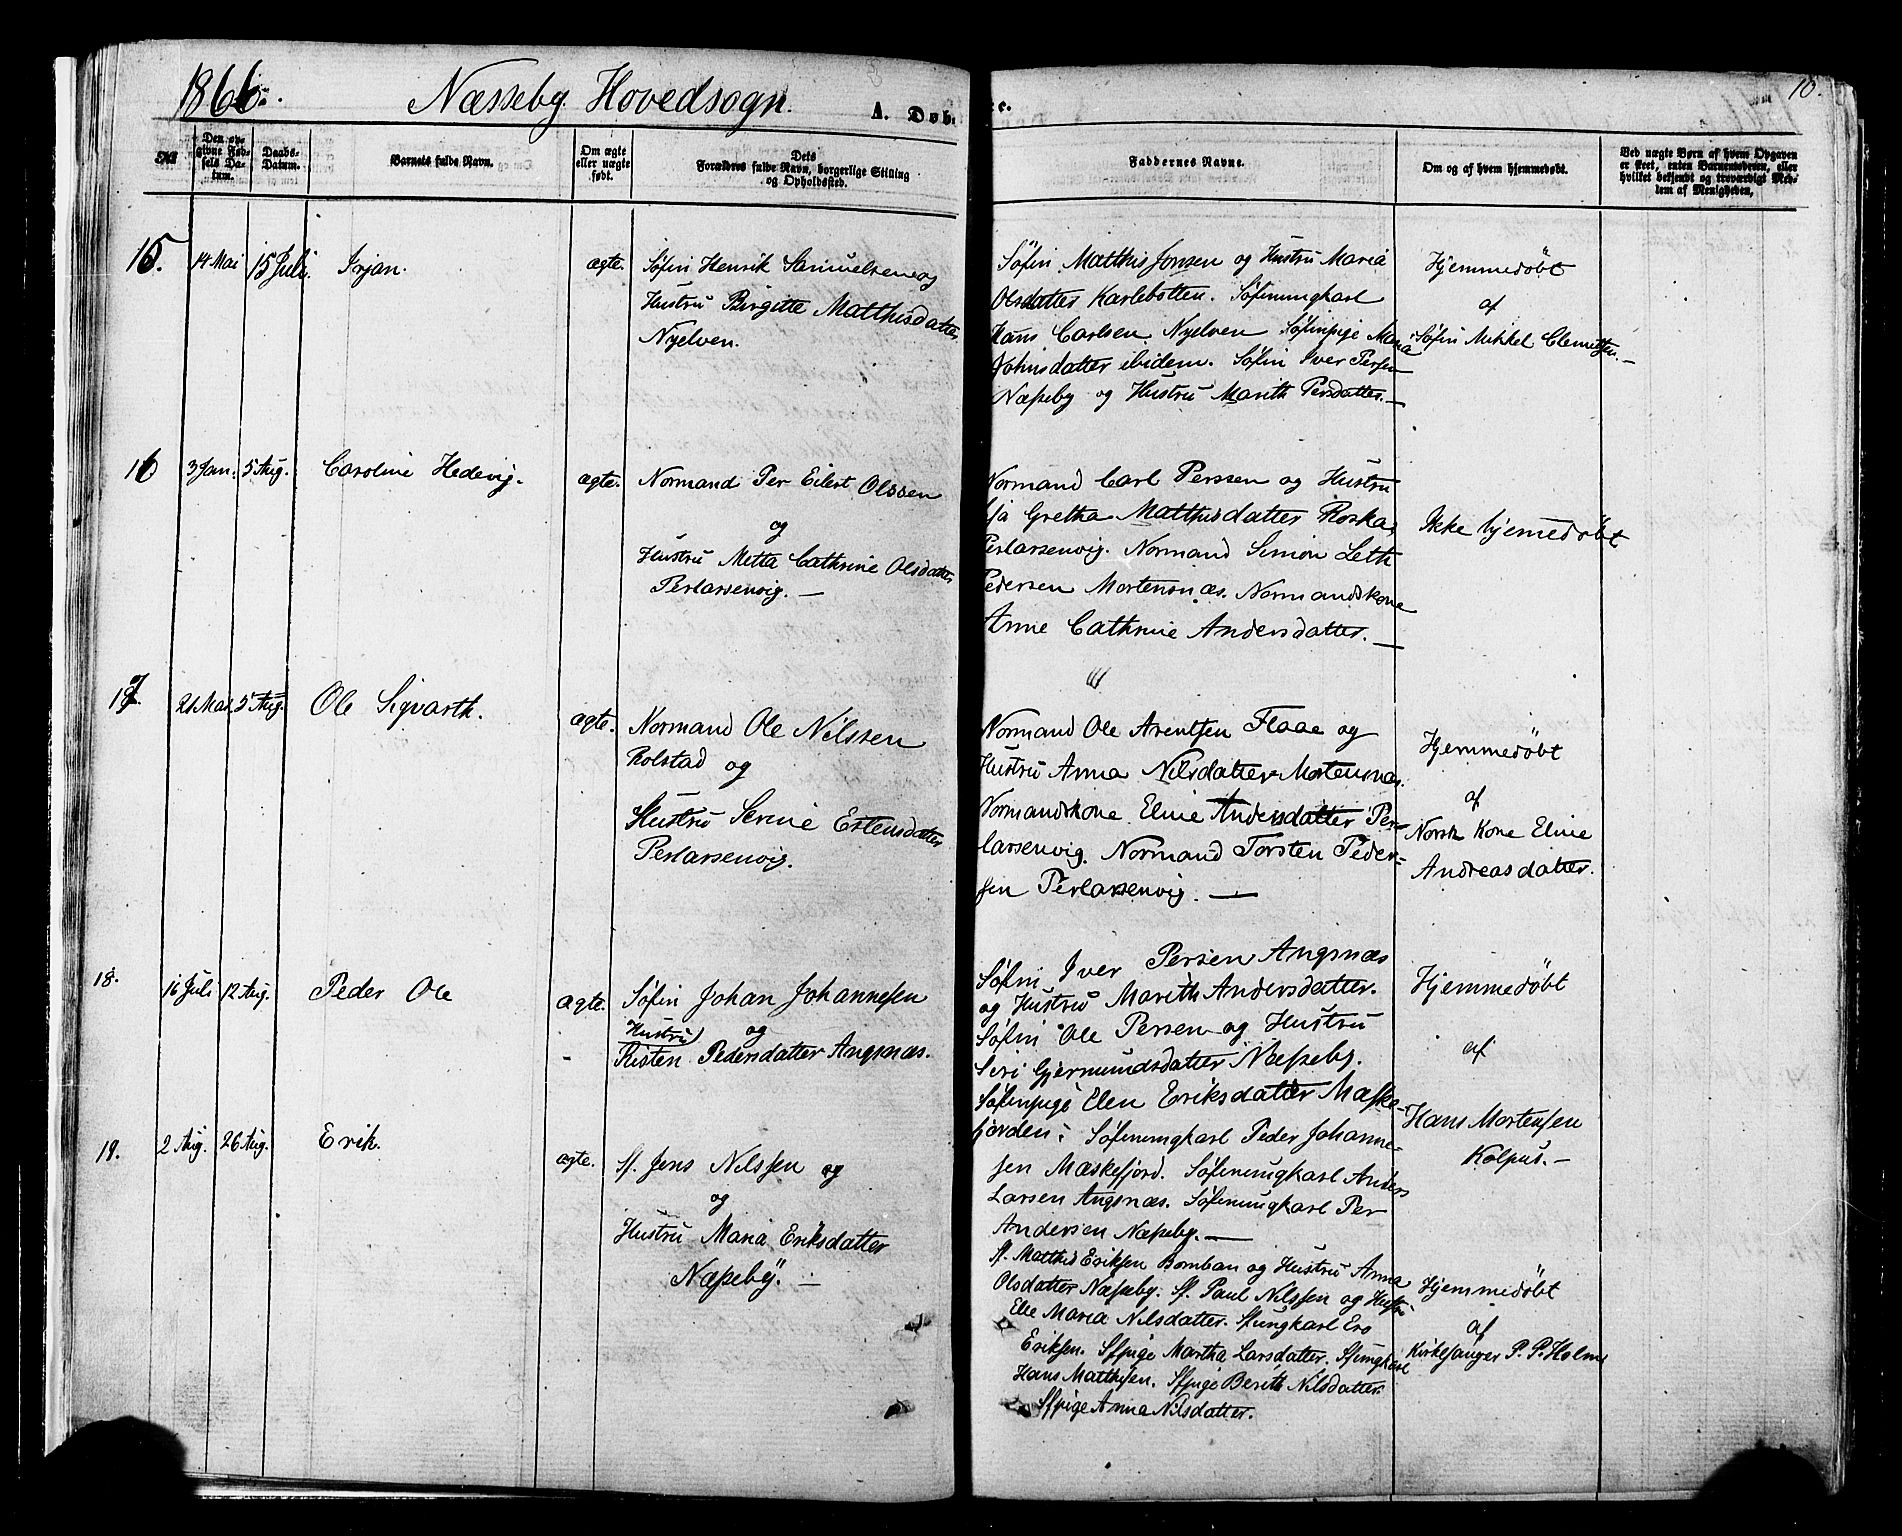 1866. Næsseby Hovedsogn. A. Døbte. 10.
No
Den opgivne Fødsels Datum.
Daabs-Datum.
Barnets fulde Navn.
Om ægte eller uægte født.
Dets Forældres fulde Navn, borgerlige Stilling og Opholdssted.
Faddernes Navne.
Om og af hvem hjemmedøbt.
Ved uægte Børn af hvem Opgaven er skeet, enten Barnemoderen, eller hvilket bekjendt og troværdigt Medlem af Menigheden.
15. 14 Mai 15 Juli. Irjan. ægte.
Søfin Henrik Samuelsen og
Hustru Birgitte Matthisdatter
Nyelven.
Søfin Matthis Jonsen og Hustru Maria
Olsdatter Karlebotten. Søfinungkarl
Hans Carlsen Nyelven Søfinpige Maria
Johnsdatter ibidem. Søfin Iver Persen
Næsseby og Hustru Marith Persdatter.—
Hjemmedøbt
af
Søfin Mikkel Clemetsen.—
16 3 Jan. 5 Aug. Caroline Hedevig. ægte.
Normand Per Eilert Olssen
og
Hustru Metta Cathrine Olsdatter
Perlarsenvig.—
Normand Carl Perssen og Hustru
Gretha Matthisdatter Roska,
Perlarsenvig. Normand Simon Leth
Pedersen Mortensnæs. Normandskone
Anne Cathrine Andersdatter.—
Ikke hjemedøbt
17. 21 Mai. 5 Aug. Ole Sigvarth. ægte.
Normand Ole Nilssen
Rolstad og
Hustru Serine Estensdatter
Perlarsenvig.
Normand Ole Arentsen Flaae og
Hustru Anna Nilsdatter Mortensnæs.
Normandskone Eline Andersdatter Per-
larsenvig. Normand Torsten Peder-
sen Perlarsenvig.—
Hjemmedøbt
af
Norsk Kone Eline
Andreasdatter.
18. 16 Juli 12 Aug. Peder Ole ægte.
Søfin Johan Johannesen
Hustru og
Risten Pedersdatter Angsnæs.
Søfin Iver Persen Angsnæs
og Hustru Marith Andersdatter.
Søfin Ole Persen og Hustru
Siri Gjermundsdatter Næsseby.
Søfinpige Elen Eriksdatter Mæske-
fjorden; Søfinungkarl Peder Johanne-
sen Mæskefjord. Søfinungkarl Anders
Larsen Angsnæs. Søfinungkarl Per
Andersen Næsseby.—
Hjemmedøbt
af
Hans Mortensen
Kolpus.—
19. 2 Aug. 26 Aug. Erik. ægte.
Sf. Jens Nilssen og
og
Hustru Maria Eriksdatter
Næsseby.—
Sf. Matthis Eriksen Bomban og Hustru Anna
Olsdatter Næsseby. Sf. Paul Nilssen og Hustru
Elie Maria Nilsdatter. Sfungkarl Ero
Eriksen. Sfpige Martha Larsdatter. Sfungkarl
Hans Matthisen. Sfpige Berith Nilsdatter.
Sfpige Anna Nilsdatter.
Hjemmedøbt
af
Kirkesanger P. P. Holm